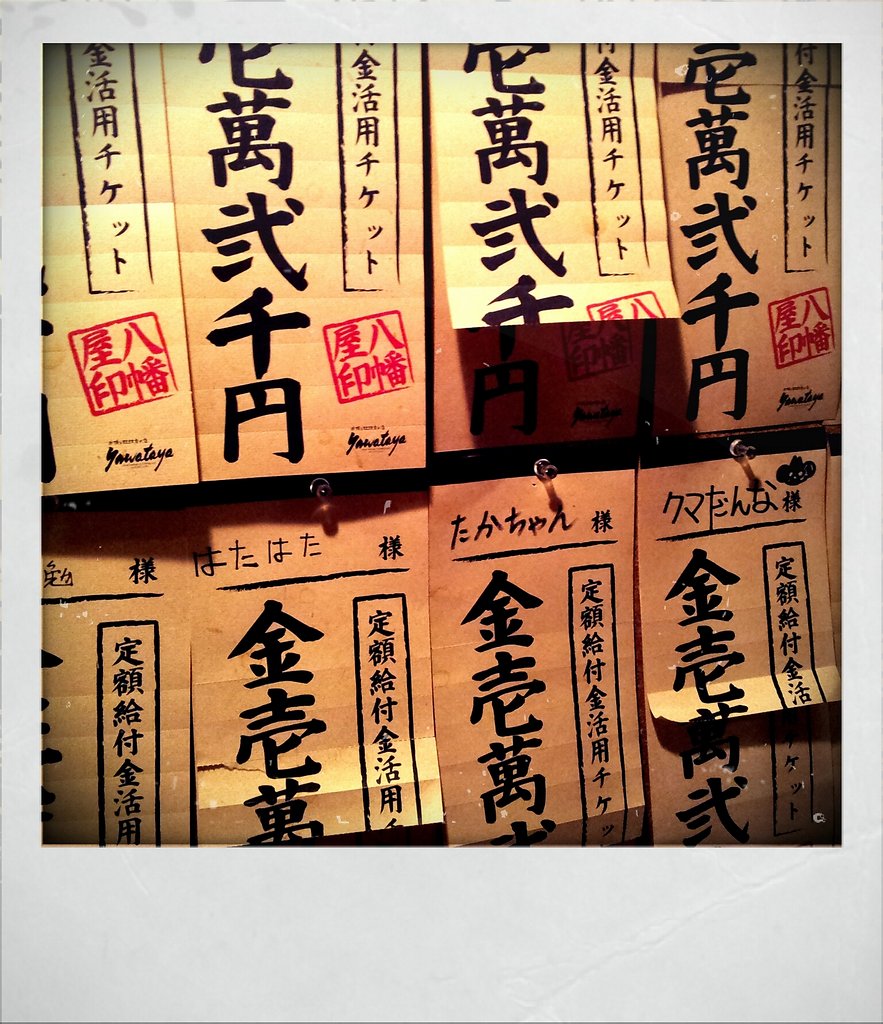 金活用チケット
壱萬弐千円
八幡屋印
Yawataya
金活用チケット
八幡屋印
Yawataya
壱萬弐千円
付金活用チケット
八
壱萬弐千円
付金活用チケット
八幡屋印
Yawataya
勉 様
定額給付金活用
はたはた 様
金壱萬
定額給付金活用
たかちゃん 様
金壱萬弐
定額給付金活用チケッ
クマだんな 様
金壱萬弐
定額給付金活
チケット